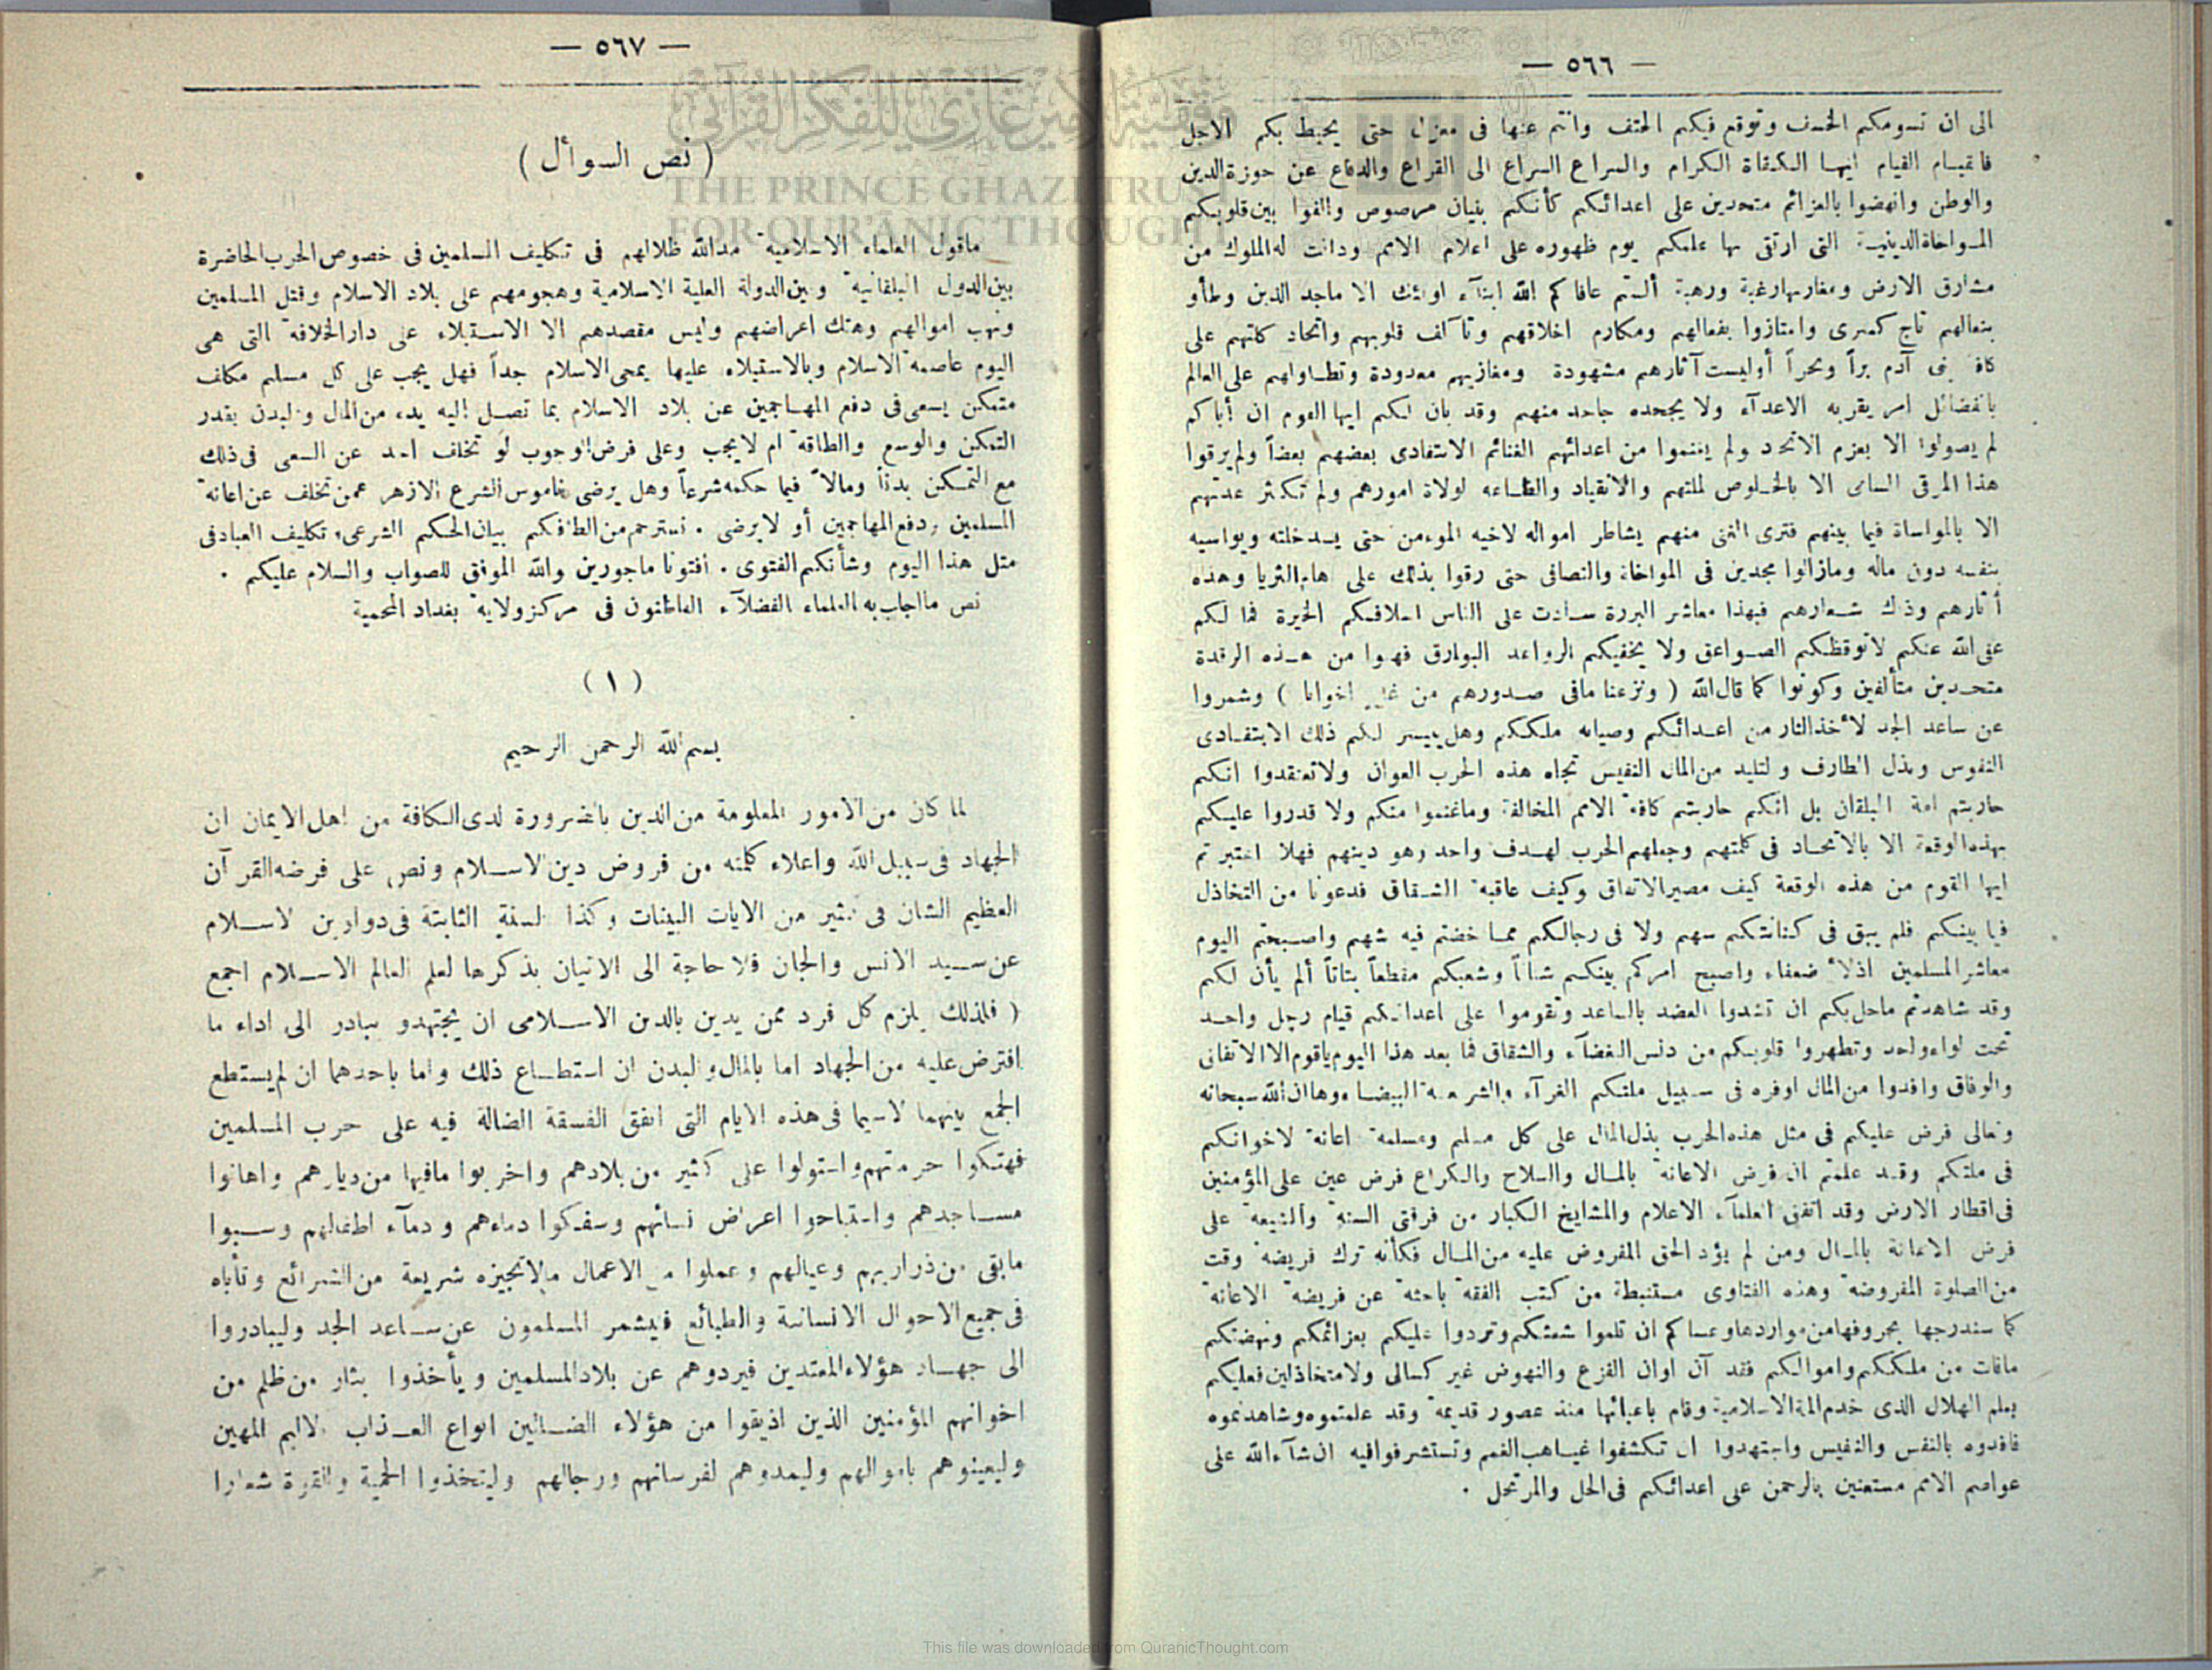 — ٥٦٦ —
الى ان تسومكم الخسف وتوقع فيكم الحتف وانتم عنها فى معزل حتى يحيط بكم الاجل
فالقيام القيام ايها الكرام والسراع السراع الى القراع والدفاع عن حوزةالدين
والوطن وانهضوا بالعزائم متحدين على اعدائكم كأنكم بنيان مرصوص والفوا بين قلوبكم
المواخاةالدينية التى ارتقى بها علمكم يوم ظهوره على اعلام الامم ودانت له الملوك من
مشارق الارض ومغاربها رغبة ورهبة ألستم عافاكم الله ابنآء اولئك الا ماجد الذين وطأو
بنعالهم تاج كسرى وامتازوا بفعالهم ومكارم اخلاقهم وتآلف قلوبهم واتحاد كلتهم على
كافة بنى آدم براً وبحراً أوليست آثارهم مشهودة ومغازيهم معدودة وتطاولهم على العالم
بالفضائل امر يقر به الاعدآء ولا يجحده جاحد منهم وقد بان لكم ايها القوم ان أباكم
لم يصولوا الا بعزم الاتحاد ولم يغنموا من اعدائهم الغنائم الابتفادى بعضهم بعضاً ولم يرقوا
هذا المرقى السامى الا بالخلوص لملتهم والانقياد والطاعه لولاة امورهم ولم تكثر عدتهم
الا بالمواساة فيما بينهم فترى الغنى منهم يشاطر امواله لاخيه الموءمن حتى يسدخلته ويواسيه
بنفسه دون ماله ومازالوا مجدين فى المواخاة والتصافى حتى رقوا بذلك على هام الثريا وهذه
أثارهم وذلك شعارهم فبهذا معاشر البررة سادت على الناس اسلافكم الخيرة فما لكم
عفى الله عنكم لاتوقظكم الصواعق ولا يخفيكم الرواعد البوارق فهبوا من هذه الرقدة
متحدين متألفين وكونوا كما قال الله ( ونزعنا مافى صدورهم من غل اخوانا ) وشمروا
عن ساعد الجد لأخذ الثار من اعدائكم وصيانه ملككم وهل ييسر لكم ذلك الابتفادى
النفوس وبذل الطارف والتليد من المال النفيس تجاه هذه الحرب العوان ولاتعتقدوا انكم
حاربتم امة البلقان بل انكم حاربتم كافة الامم المخالفة وماغنموا منكم ولا قدروا عليكم
بهذه الوقعة الا بالاتحاد فى كلتهم وجعلهم الحرب لهدف واحد وهو دينهم فهلا اعتبرتم
ايها القوم من هذه الوقعة كيف مصير الاتفاق وكيف عاقبة الشقاق فدعونا من التخاذل
فيما بينكم فلم يبق فى كنانتكم سهم ولا فى رجالكم مما خضتم فيه شهم واصبحتم اليوم
معاشر المسلمين اذلاء ضعفاء واصبح امركم بينكم شتاتاً وشعبكم مقطعاً بتاتاً ألم يأن لكم
وقد شاهدتم ماحل بكم ان تشدوا العضد بالساعد وتقوموا على اعدائكم قيام رجل واحد
تحت لواء واحد وتطهروا قلوبكم من دنس البغضآء والشقاق فما بعد هذا اليوم ياقوم الاالاتفاق
والوفاق وافدوا من المال اوفره فى سبيل ملتكم الغرآء والشريعة البيضاء وها ان الله سبحانه
وتعالى فرض عليكم فى مثل هذه الحرب بذل المال على كل مسلم ومسلمة اعانة لاخوانكم
فى ملتكم وقد علمتم ان فرض الاعانة بالمال والسلاح والكراع فرض عين على المؤمنين
فى اقطار الارض وقد اتفق العلمآء الاعلام والمشايخ الكبار من فرقتى السنة والشيعة على
فرض الاعانة بالمال ومن لم يؤد الحق المفروض عليه من المال فكأنه ترك فريضة وقت
من الصلوة المفروضة وهذه الفتاوى مستنبطة من كتب الفقه باحثة عن فريضة الاعانة
كما سندرجها بحروفها من مواردها وعساكم ان تلموا شعثكم وتردوا عليكم بعزائمكم ونهضتكم
مافات من ملككم واموالكم فقد آن اوان الفزع والنهوض غير كسالى ولامتخاذلين فعليكم
بعلم الهلال الذى خدم الملة الاسلامية وقام باعبائها منذ عصور قديمة وقد علمتموه وشاهدتموه
فافدوه بالنفس والنفيس واجتهدوا ان تكشفوا غياهب الغمم وتستشرفوافيه ان شآءالله على
عواصم الامم مستعنين بالرحمن على اعدائكم فى الحل والمرتحل .
— ٥٦٧ —
( نص السوأل )
ماقول العلماء الاسلامية مدالله ظلالهم فى تكليف المسلمين فى خصوص الحرب الحاضرة
بين الدول البلقانية وبين الدولة العلية الاسلامية وهجومهم على بلاد الاسلام وقتل المسلمين
ونهب اموالهم وهتك اعراضهم وليس مقصدهم الا الاستيلاء على دار الخلافة التى هى
اليوم عاصمة الاسلام وبالاستيلاء عليها يمحى الاسلام جداً فهل يجب على كل مسلم مكلف
متمكن يسعى فى دفع المهاجمين عن بلاد الاسلام بما تصل اليه يده من المال والبدن بقدر
التمكن والوسع والطاقة ام لايجب وعلى فرض الوجوب لو تخلف احد عن السعى فى ذلك
مع التمكن بدناً ومالاً فيما حكمه شرعاً وهل يرضى ناموس الشرع الازهر عمن تخلف عن اعانة
المسلمين ودفع المهاجمين أو لا يرضى . نسترحم من الطافكم بيان الحكم الشرعى وتكليف العباد فى
مثل هذا اليوم وشأنكم الفتوى . افتونا ماجورين والله الموفق للصواب والسلام عليكم .
نص مااجاب به العلماء الفضلآء القاطنون فى مركز ولاية بغداد المحمية
( ١ )
بسم الله الرحمن الرحيم
لما كان من الامور المعلومة من الدين بالضرورة لدى الكافة من اهل الايمان ان
الجهاد فى سبيل الله واعلاء كلمته من فروض دين الاسلام ونص على فرضه القرآن
العظيم الشان فى كثير من الايات البينات وكذا السنة الثابتة فى دواوين الاسلام
عن سيد الانس والجان فلا حاجة الى الاتيان بذكرها لعلم العالم الاسلام اجمع
( فلذلك يلزم كل فرد ممن يدين بالدين الاسلامى ان يجتهدو يبادر الى اداء ما
افترض عليه من الجهاد اما بالمال والبدن ان استطاع ذلك واما باحدهما ان لم يستطع
الجمع بينهما لاسيما فى هذه الايام التى اتفق الفسقة الضالة فيه على حرب المسلمين
فهتكوا حرمتهم واستولوا على كثير من بلادهم واخربوا مافيها من ديارهم واهانوا
مساجدهم واستباحوا اعراض نسائهم وسفكوا دماءهم ودمآء اطفالهم وسبوا
مابقى من ذراريهم وعيالهم وعملوا من الاعمال مالاتجيزه شريعة من الشرائع وتأباه
فى جميع الاحوال الانسانية والطبائع فيشمر المسلمون عن ساعد الجد وليبادروا
الى جهاد هؤلاء المعتدين فيردوهم عن بلاد المسلمين ويأخذوا بثار من ظلم من
اخوانهم المؤمنين الذين اذيقوا من هؤلاء الضالين انواع العذاب الاليم المهين
وليعينوهم باموالهم وليمدوهم لفرسانهم ورجالهم وليتخذوا الحمية والقوة شعارا
THE PRINCE GHAZI TRUST
FOR QUR'ĀNIC THOUGHT
This file was downloaded from QuranicThought.com